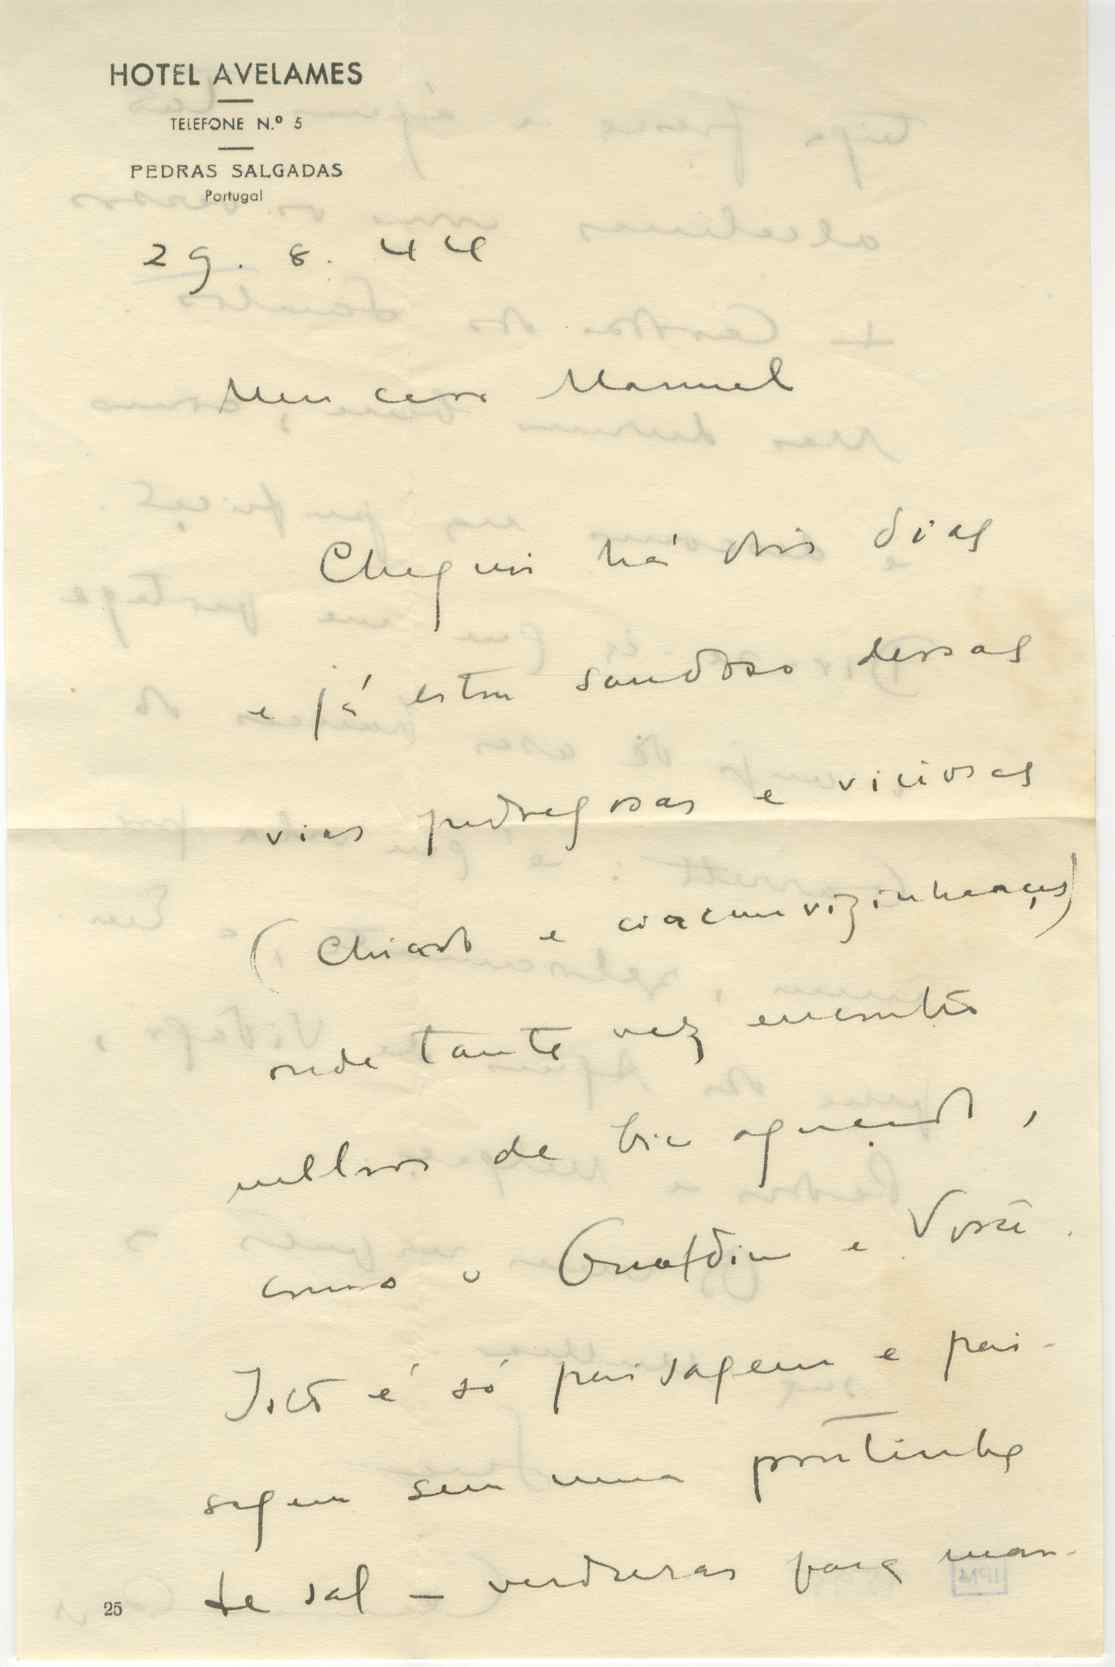 HOTEL AVELAMES
TELEFONE N.º 5
PEDRAS SALGADAS
Portugal
29. 8. 44
Meu caro Manuel
Cheguei há dois dias
e já estou saudoso dessas
vias pedregosas e viciosas
(Chiado e circumvizinhanças)
onde tanta vez encontro
melhoros de bic aguçado,
como o Gualdim e Você.
Isto é só paisagem e pai-
sagem sem uma pontinha
de sal – verduras para man-
25